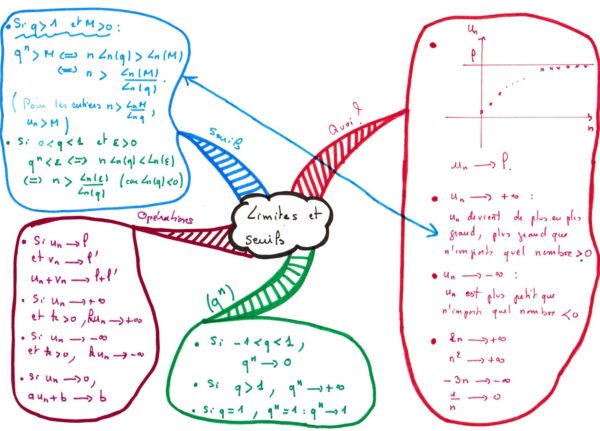 • Si q>1 et M>0 :
qⁿ > M ⟺ n Ln(q) > Ln(M)
⟺ n > Ln(M)/Ln(q).
(Pour les entiers n > LnM/Lnq
uₙ > M)
• Si 0<q<1 et ε>0
qⁿ<ε ⟺ n Ln(q) < Ln(ε)
⟺ n > Ln(ε)/Ln(q) (car Ln(q)<0)
Seuils
Quoi?
Limites et
seuils
Opérations
(qⁿ)
• Si uₙ → l
et vₙ → l'
uₙ+vₙ → l+l'
• Si uₙ → +∞
et k>0, kuₙ → +∞
Si uₙ → -∞
et k>0, kuₙ → -∞
• si uₙ → 0,
auₙ+b → b
• Si -1<q<1,
qⁿ → 0
• Si q>1, qⁿ → +∞
• Si q=1, qⁿ=1 : qⁿ → 1
• uₙ
l
n
uₙ → l.
• uₙ → +∞ :
uₙ devient de plus en plus
grand, plus grand que
n'importe quel nombre >0
• uₙ → -∞ :
uₙ est plus petit que
n'importe quel nombre <0
• 2n → +∞
n² → +∞
-3n → -∞
1/n → 0